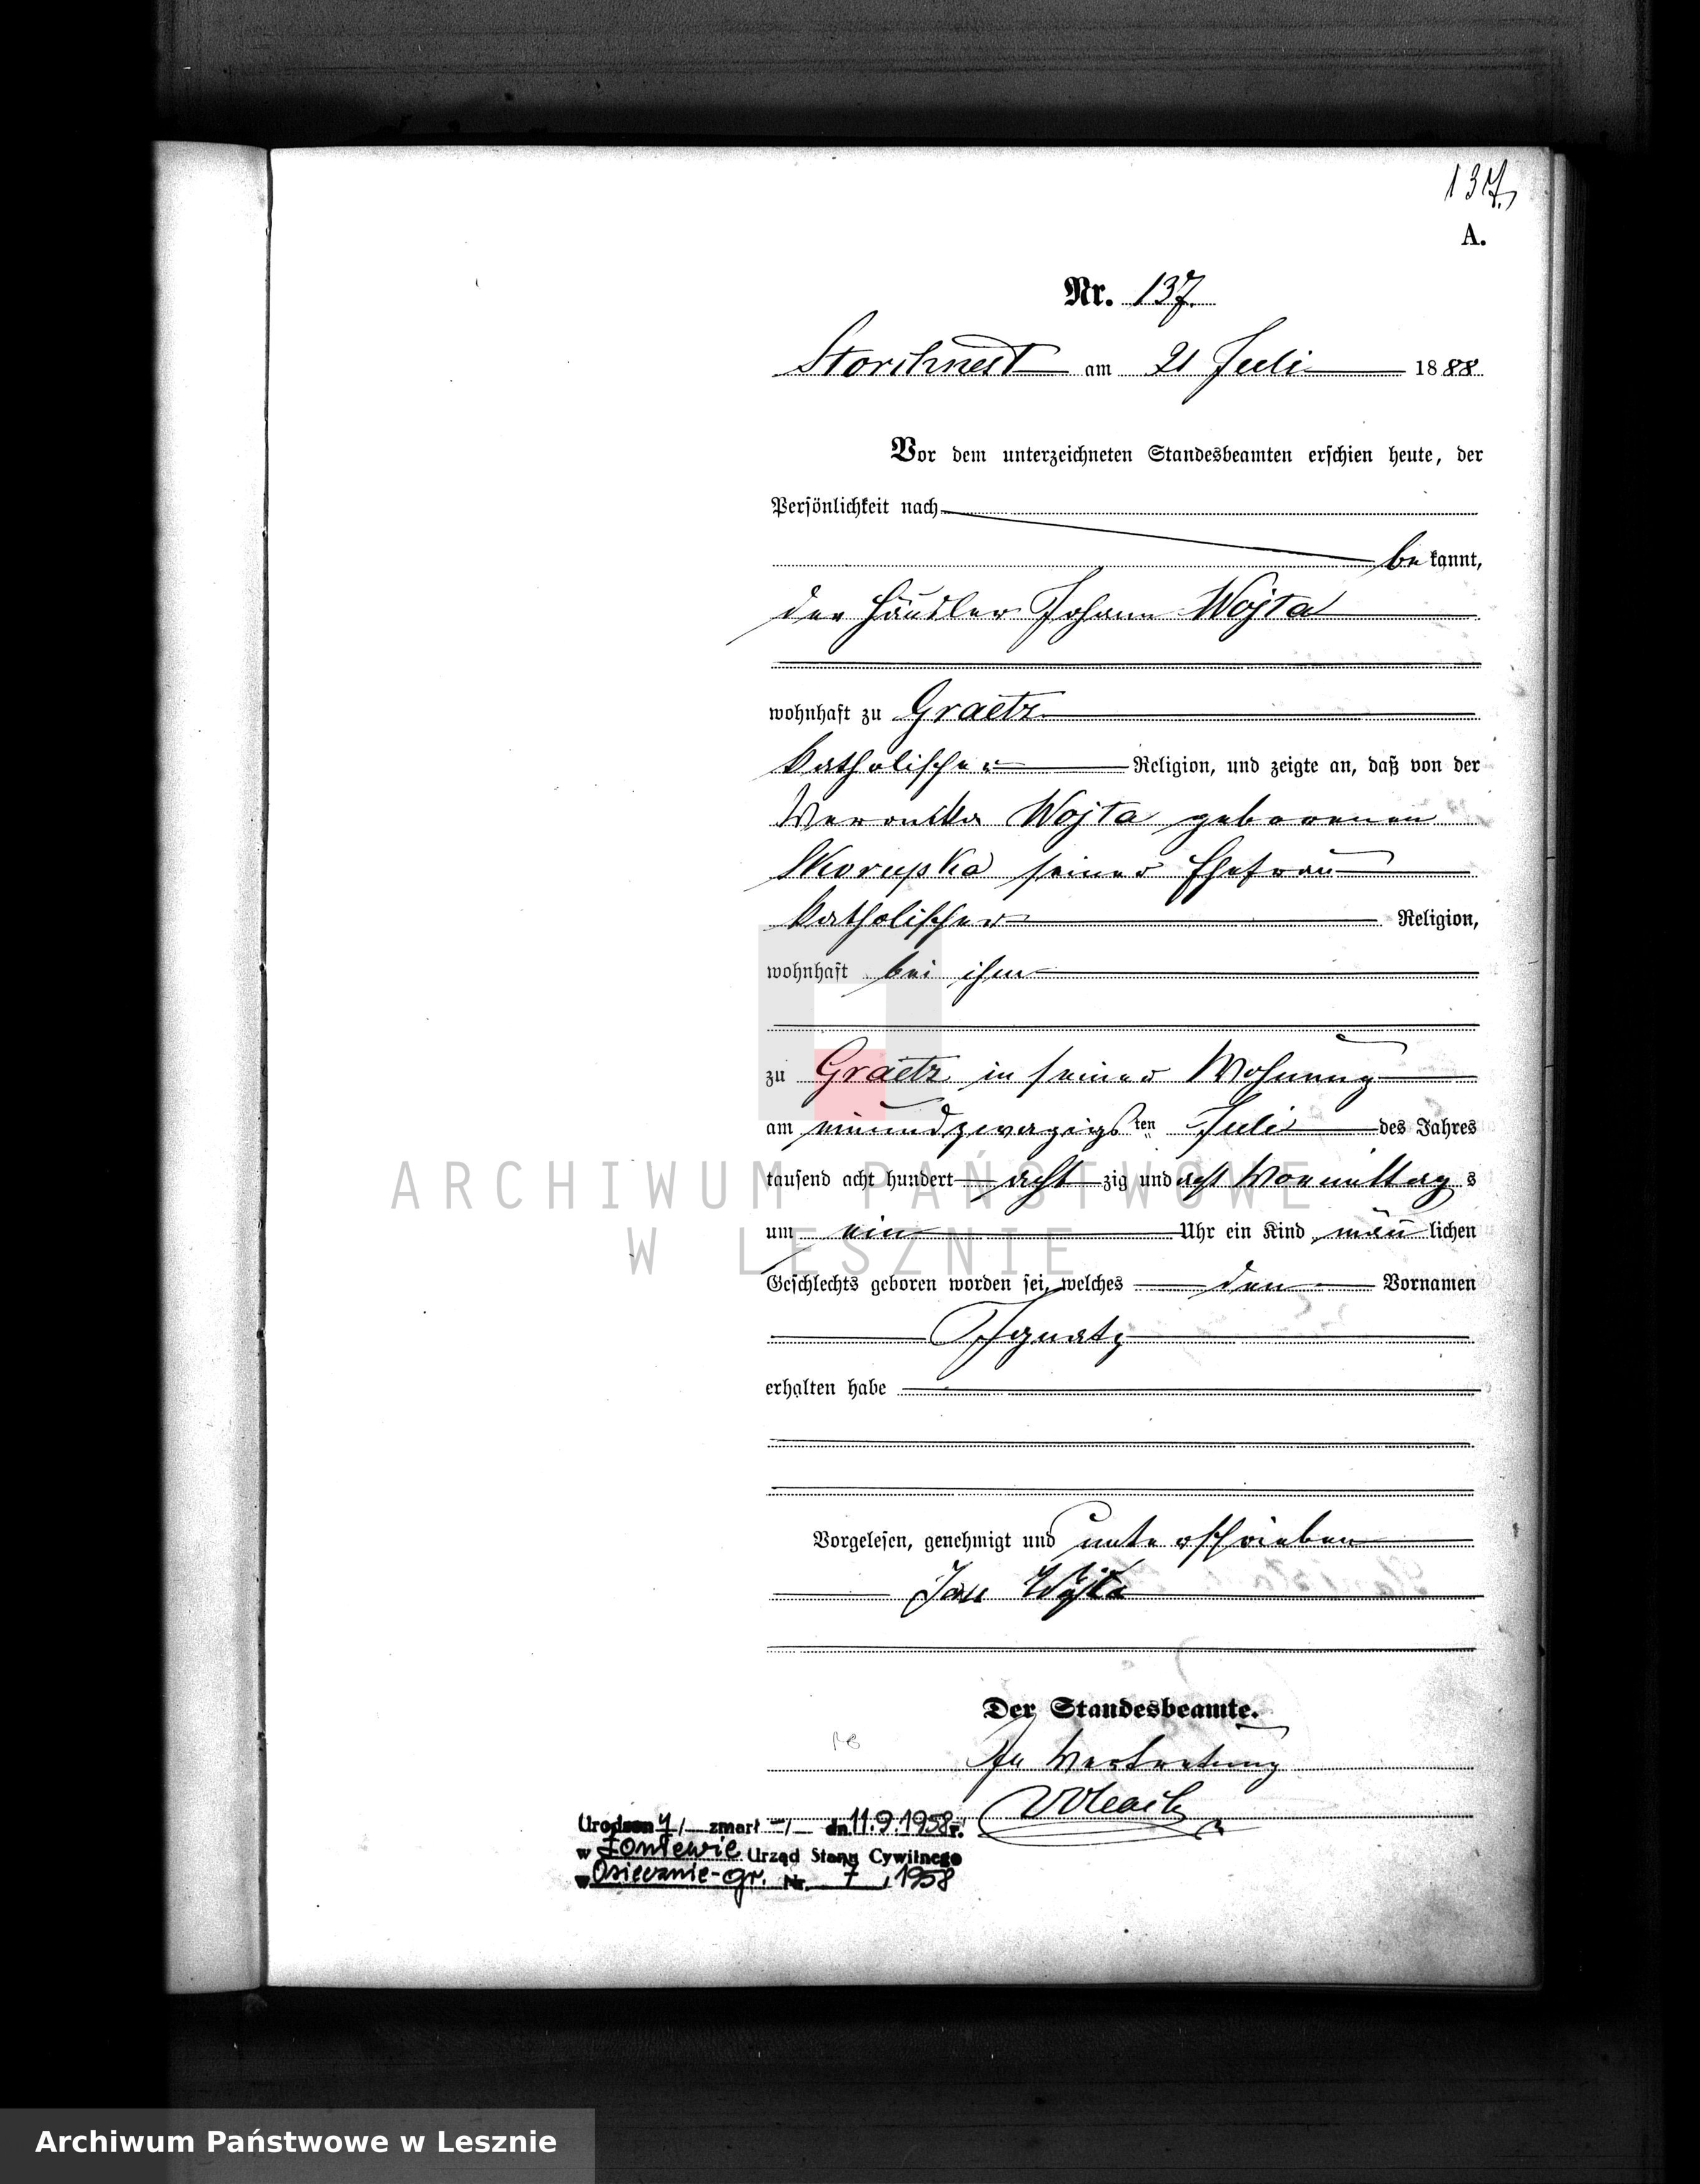 137.
A.
Nr. 137.
Storchnest am 21 Juli 1888
Vor dem unterzeichneten Standesbeamten erschien heute, der
Persönlichkeit nach
be kannt,
der Händler Johann Wojta
wohnhaft zu Graetz
katholischer Religion, und zeigte an, daß von der
Weronika Wojta geborenen
Skorupka seiner Ehefrau
katholischer Religion,
wohnhaft bei ihm
zu Graetz in seiner Wohnung
am einundzwanzigsten Juli des Jahres
tausend acht hundert acht zig und acht Vormittag s
um ein Uhr ein Kind männ lichen
Geschlechts geboren worden sei, welches den Vornamen
Ignatz
erhalten habe
Vorgelesen, genehmigt und unterschrieben
Jan Wojta
Der Standesbeamte.
In Vertretung
Urodzon y /— zmarł —/— dn. 11.9.1958 r.
w Łoniewie Urząd Stanu Cywilnego
w Osiecznie-gr. Nr. 7 / 1958
ARCHIWUM PAŃSTWOWE
W LESZNIE
Archiwum Państwowe w Lesznie